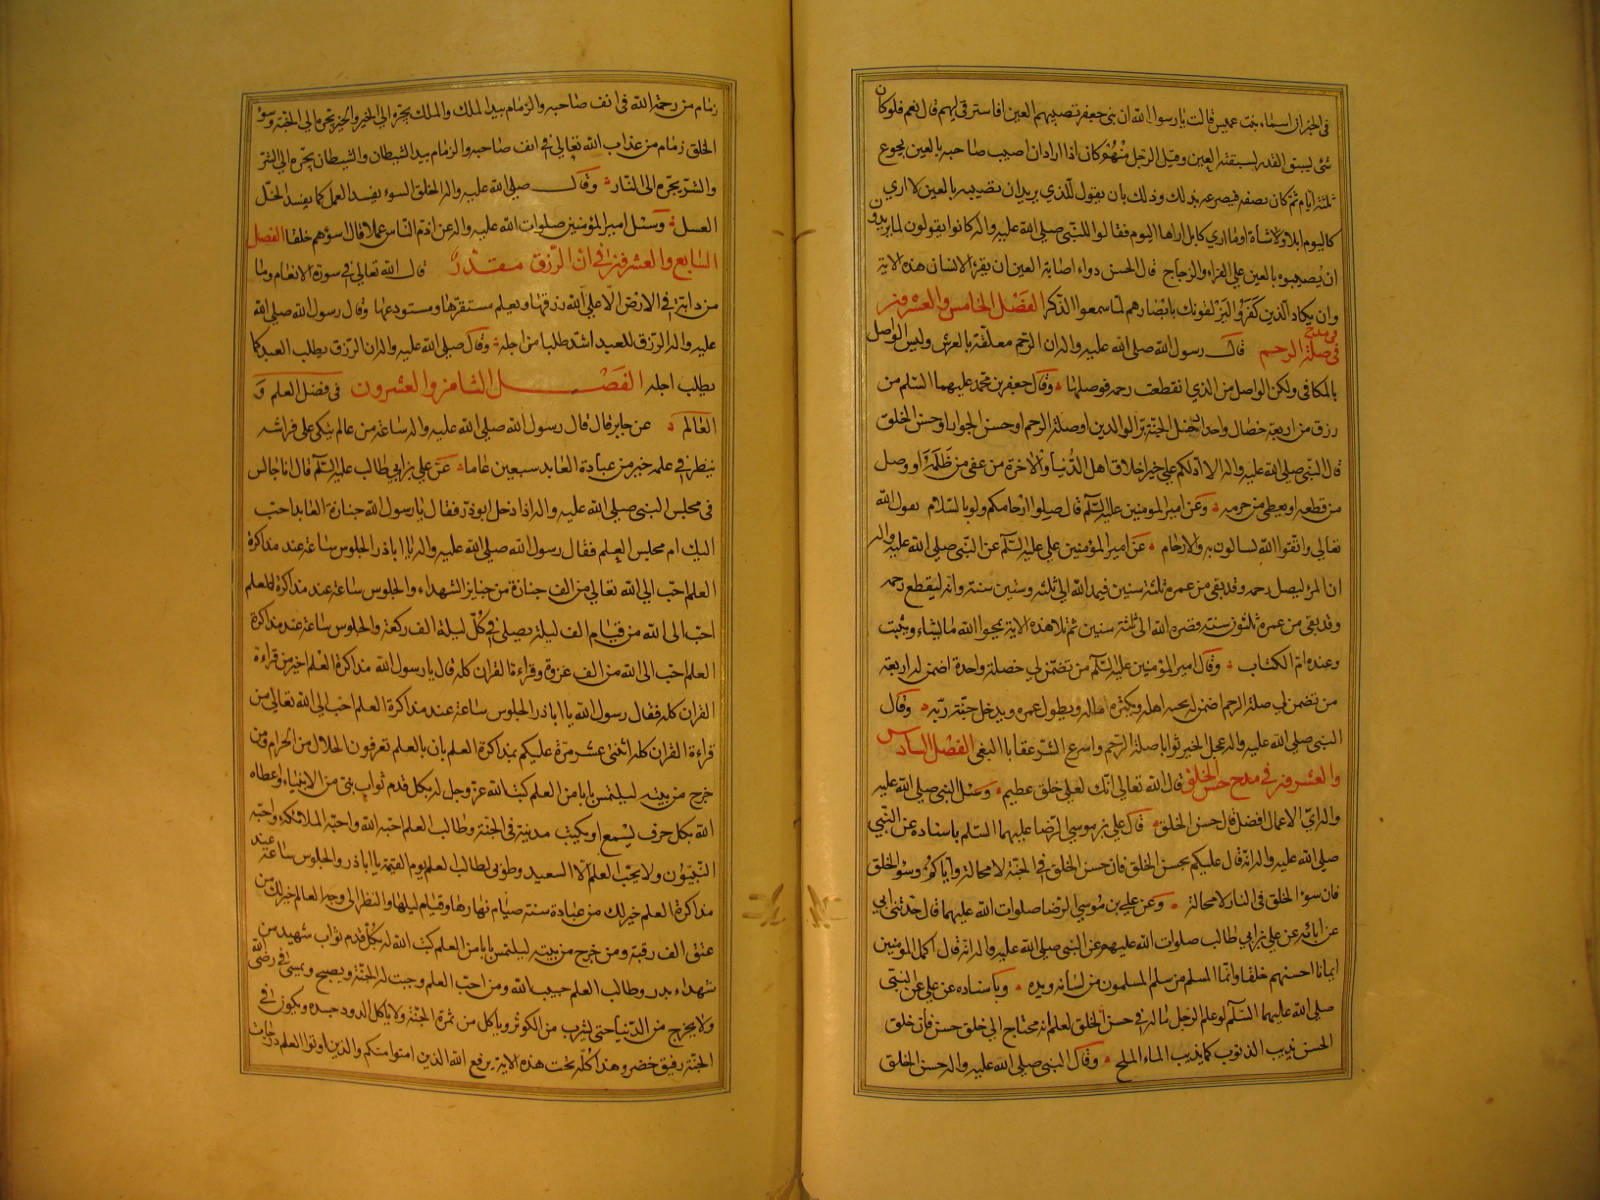 فى الخبر ان اسماء بنت عميس قالت يا رسول الله ان بنى جعفر تصيبهم العين افاسترقى لهم قال نعم فلو كان
شئ يسبق القدر لسبقته العين وقيل الرجل منهم كان اذا اراد ان اصيب صاحبه بالعين يجوع
ثلثة ايام ثم كان يصفه فيصرعه بذلك وذلك بان يقول للذى يريدان تصيبه بالعين لا ارى
كاليوم ابلا ولا شاة او ما ارى كابل اراها اليوم فقالوا للنبى صلى الله عليه واله كما كانوا يقولون لما يريدون
ان يصيبوه بالعين على الفراء والزجاج قال الحسن دواء اصابة العين ان يقرء الانسان هذه الاية
وان يكاد الذين كفروا ليزلقونك بابصارهم لما سمعوا الذكر الفصل الخامس والعشرون
فى مدح
فى صلة الرحم قال رسول الله صلى الله عليه واله ان الرحم معلقة بالعرش وليس الواصل
بالمكافى ولكن الواصل من الذى انقطعت رحمه فوصلها وقال جعفر بن محمد عليهما السلم من
رزق من اربعة خصال واحدا دخل الجنة بر الوالدين او صلة الرحم او حسن الجوار او حسن الخلق
قال النبى صلى الله عليه واله الا ادلكم على خير اخلاق اهل الدنيا والاخرة من عفى من ظلمه او وصل
من قطعه او يعطى من حرمه وعن امير المؤمنين عليه السلم قال صلوا ارحامكم ولو بالسلام يقول الله
تعالى واتقوا الله تسالون به والارحام عن امير المؤمنين على عليه السلم عن النبى صلى الله عليه واله
ان المرء ليصل رحمه وقد بقى من عمره ثلثة سنين فيمد الله الى ثلثه وستين سنة وانه ليقطع رحمه
وقد بقى من عمره ثلثون سنة وقصره الله الى ثلثة سنين ثم تلا هذه الاية يمحوا الله ما يشاء ويثبت
وعنده ام الكتاب وقال امير المؤمنين عليه السلم من تضمن لى خصلة واحدة اضمن له اربعة
من تضمن لى صلة الرحم اضمن له يحبه اهله ويكثر ماله ويطول عمره ويدخل جنة ربه وقال
النبى صلى الله عليه واله عجل الخير ثوابا صلة الرحم واسرع الشر عقابا البغى الفصل السادس
والعشرون فى مدح حسن الخلق قال الله تعالى انك لعلى خلق عظيم وسئل النبى صلى الله عليه
واله اى الاعمال افضل قال حسن الخلق قال على بن موسى الرضا عليهما السلم باسناده عن النبى
صلى الله عليه واله انه قال عليكم بحسن الخلق فان حسن الخلق فى الجنة لا محالة واياكم وسؤ الخلق
فان سوء الخلق فى النار لا محالة وعن على بن موسى الرضا صلوات الله عليهما قال حدثنى ابى
عن ابائه عن على بن ابى طالب صلوات الله عليهم عن النبى صلى الله عليه واله انه قال اكمل المؤمنين
ايمانا احسنهم خلقا وانما المسلم من سلم المسلمون من لسانه ويده وباسناده عن على عن النبى
صلى الله عليهما السلم لو علم الرجل ما له فى حسن الخلق لعلم انه محتاج الى خلق حسن فان خلق
الحسن يذيب الذنوب كما يذيب الماء الملح وقال النبى صلى الله عليه واله حسن الخلق
زمام من رحمة الله فى انف صاحبه والزمام بيد الملك والملك يجره الى الخير والخير يجره الى الجنة وسؤ
الخلق زمام من عذاب الله تعالى فى انف صاحبه والزمام بيد الشيطان والشيطان يجره الى الشر
والشر يجره الى النار وقال صلى الله عليه واله الخلق السوء يفسد العمل كما يفسد الخل
العسل وسئل امير المؤمنين صلوات الله عليه واله عن اذم الناس عملا قال اسوءهم خلقا الفصل
السابع والعشرون فى ان الرزق مقدر قال الله تعالى فى سورة الانعام وما
من دابة فى الارض الا على الله رزقها ويعلم مستقرها ومستودعها وقال رسول الله صلى الله
عليه واله الرزق للعبد اشد طلبا من اجله وقال صلى الله عليه واله ان الرزق يطلب العبد كما
يطلب اجله الفصل الثامن والعشرون فى فضل العلم و
العالم عن جابر قال قال رسول الله صلى الله عليه واله ساعة من عالم يتكى على فراشه
ينظر فى علمه خير من عبادة العابد سبعين عاما عن على بن ابى طالب عليه السلم قال انا جالس
فى مجلس النبى صلى الله عليه واله اذا دخل ابوذر فقال يا رسول الله جنازة العابد احب
اليك ام مجلس العلم فقال رسول الله صلى الله عليه واله يا اباذر الجلوس ساعة عند مذاكرة
العلم احب الى الله تعالى من الف جنازة من جنايز الشهداء والجلوس ساعة عند مذاكرة العلم
احب الى الله من قيام الف ليلة يصلى فى كل ليلة الف ركعة والجلوس ساعة عند مذاكرة
العلم احب الى الله من الف غزوة وقراءة القران كله قال يا رسول الله مذاكرة العلم اخير من قراءة
القران كله فقال رسول الله يا اباذر الجلوس ساعة عند مذاكرة العلم احب الى الله تعالى من
قراءة القران كله اثنى عشر مرة عليكم بمذاكرة العلم بان بالعلم تعرفون الحلال من الحرام ومن
خرج من بيته ليلتمس بابا من العلم كتب الله عز وجل له بكل قدم ثواب نبى من الانبياء واعطاه
الله بكل حرف يسمع او يكتب مدينة فى الجنة وطالب العلم احبه الله واحبه الملائكة واحبه
النبيون ولا يحب العلم الا السعيد وطوبى لطالب العلم يوم القيمة يا اباذر والجلوس ساعة عند
مذاكرة العلم خير لك من عبادة سنة صيام نهارها وقيام ليلها والنظر الى وجه العالم خير لك من
عتق الف رقبة ومن خرج من بيته ليلتمس بابا من العلم كتب الله له بكل قدم ثواب شهيد من
شهداء بدر وطالب العلم حبيب الله ومن احب العلم وجبت له الجنة ويصبح ويمسى فى رضى الله
ولا يخرج من الدنيا حتى يشرب من الكوثر وياكل من ثمرة الجنة ولا ياكل الدود جسده ويكون فى
الجنة رفيق خضر وهذا كله تحت هذه الاية يرفع الله الذين امنوا منكم والذين اوتوا العلم درجات